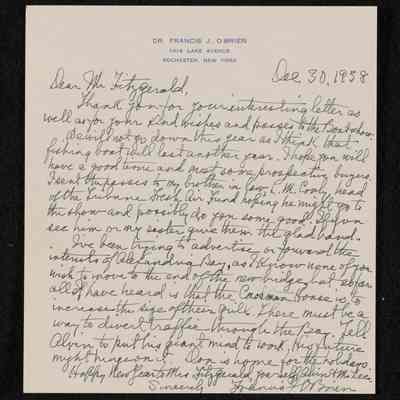 DR. FRANCIS J. O'BRIEN
LAKE AVENUE
ROCHESTER, NEW YORK
Dec 30, 1958
Dear Mr Fitzgerald,
Thank you for your interesting letter as
well as for your kind wishes and passes to the Boat show.
We will not go down this year as I think that
fishing boat will last another year. I hope you will
have a good time and meet some prospective buyers.
I sent the passes to my brother in law, L. M. head
of the Tribune Fresh Air Fund hoping he might go to
the show and possibly do you some good. If you
see him or my sister give them the glad hand.
I've been trying to advertise or forward the
interests of Alexandria Bay, as I know none of you
wish to move to the end of the new bridge, but so far
all I have heard is that the House is to
increase the size of their There must be a
way to divert traffic through the Bay. Tell
Alvin to put his giant mind to work. His future
might hinge on it. Don is home for the holidays.
Happy New Year to Mrs Fitzgerald, yourself, Alvin &
Sincerely Francis J. O'Brien